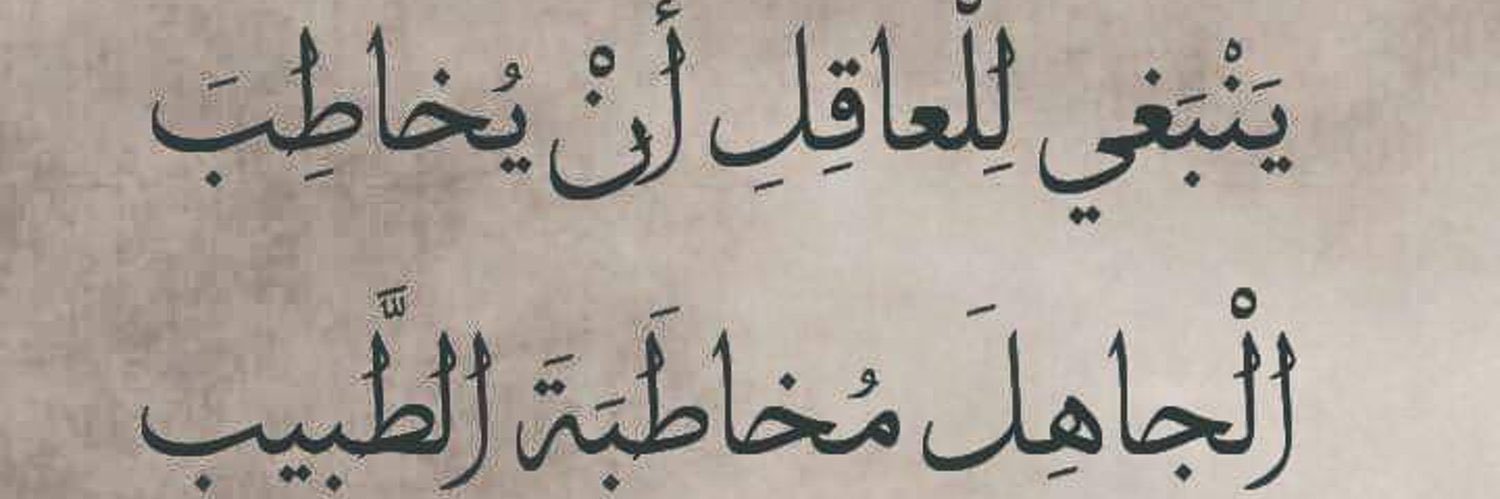 يَنْبَغي لِلْعاقِلِ أَنْ يُخاطِبَ
الْجاهِلَ مُخاطَبَةَ الطَّبيب